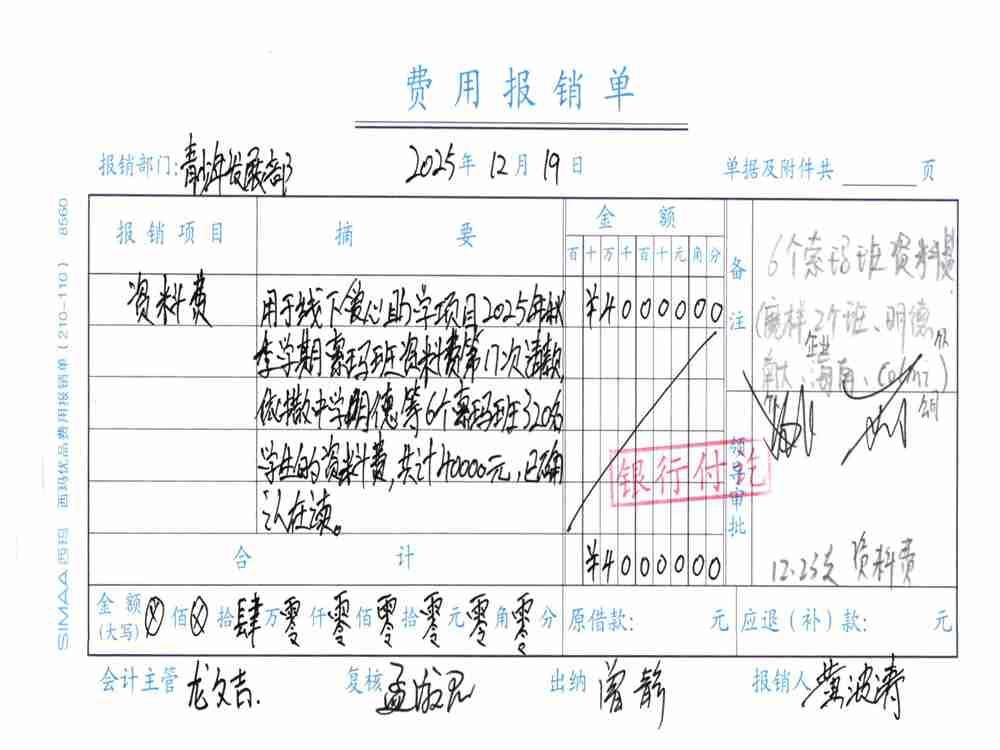 费用报销单
报销部门:青少年发展部 2025年12月19日 单据及附件共 页
SIMAA 西玛 西玛优品费用报销单(210-110) 8560
报销项目 摘要 金额
百十万千百十元角分
备注
资料费
用于线下爱心助学项目2025年秋
季学期索玛班资料费第17次请款,
依撒中学明德等6个索玛班320名
学生的资料费,共计40000元,已确
认在读。
¥4000000
6个索玛班资料费
2个班、明德
海南
领导审批
银行付讫
12.23 资料费
合计 ¥4000000
金额(大写)佰拾肆万零仟零佰零拾零元零角零分 原借款: 元 应退(补)款: 元
会计主管 龙文吉 复核 出纳 曾静 报销人 黄波涛